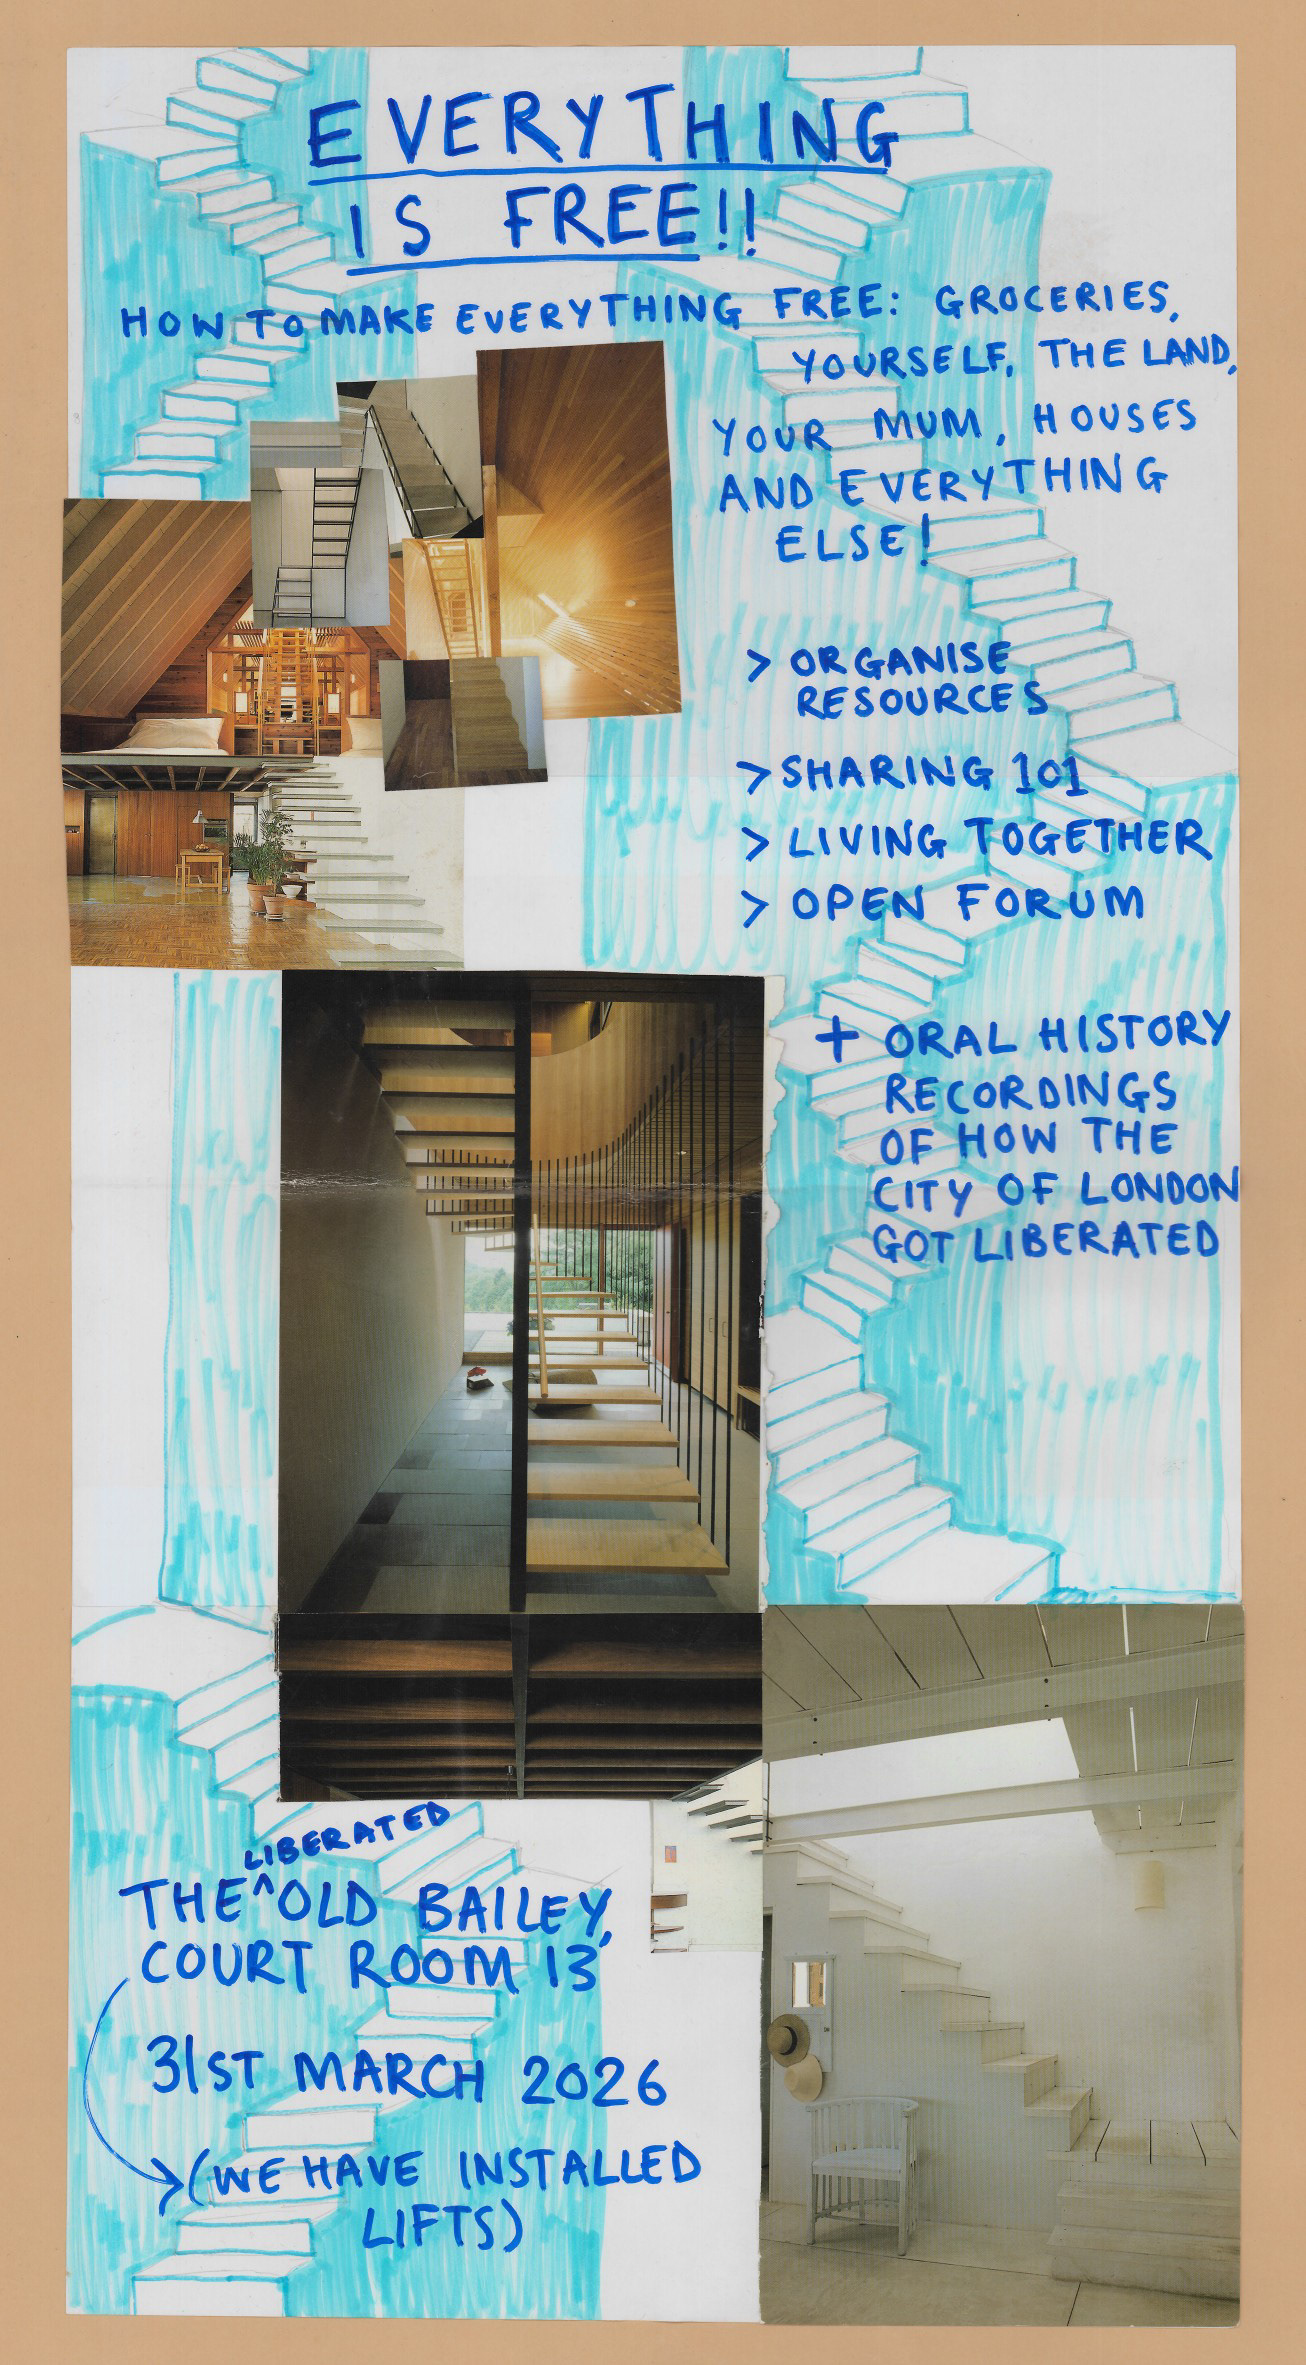 EVERYTHING
IS FREE!!
HOW TO MAKE EVERYTHING FREE: GROCERIES,
YOURSELF, THE LAND,
YOUR MUM, HOUSES
AND EVERYTHING
ELSE!
> ORGANISE
RESOURCES
> SHARING 101
> LIVING TOGETHER
> OPEN FORUM
+ ORAL HISTORY
RECORDINGS
OF HOW THE
CITY OF LONDON
GOT LIBERATED
LIBERATED
THE ^ OLD BAILEY,
COURT ROOM 13
31ST MARCH 2026
> (WE HAVE INSTALLED
LIFTS)